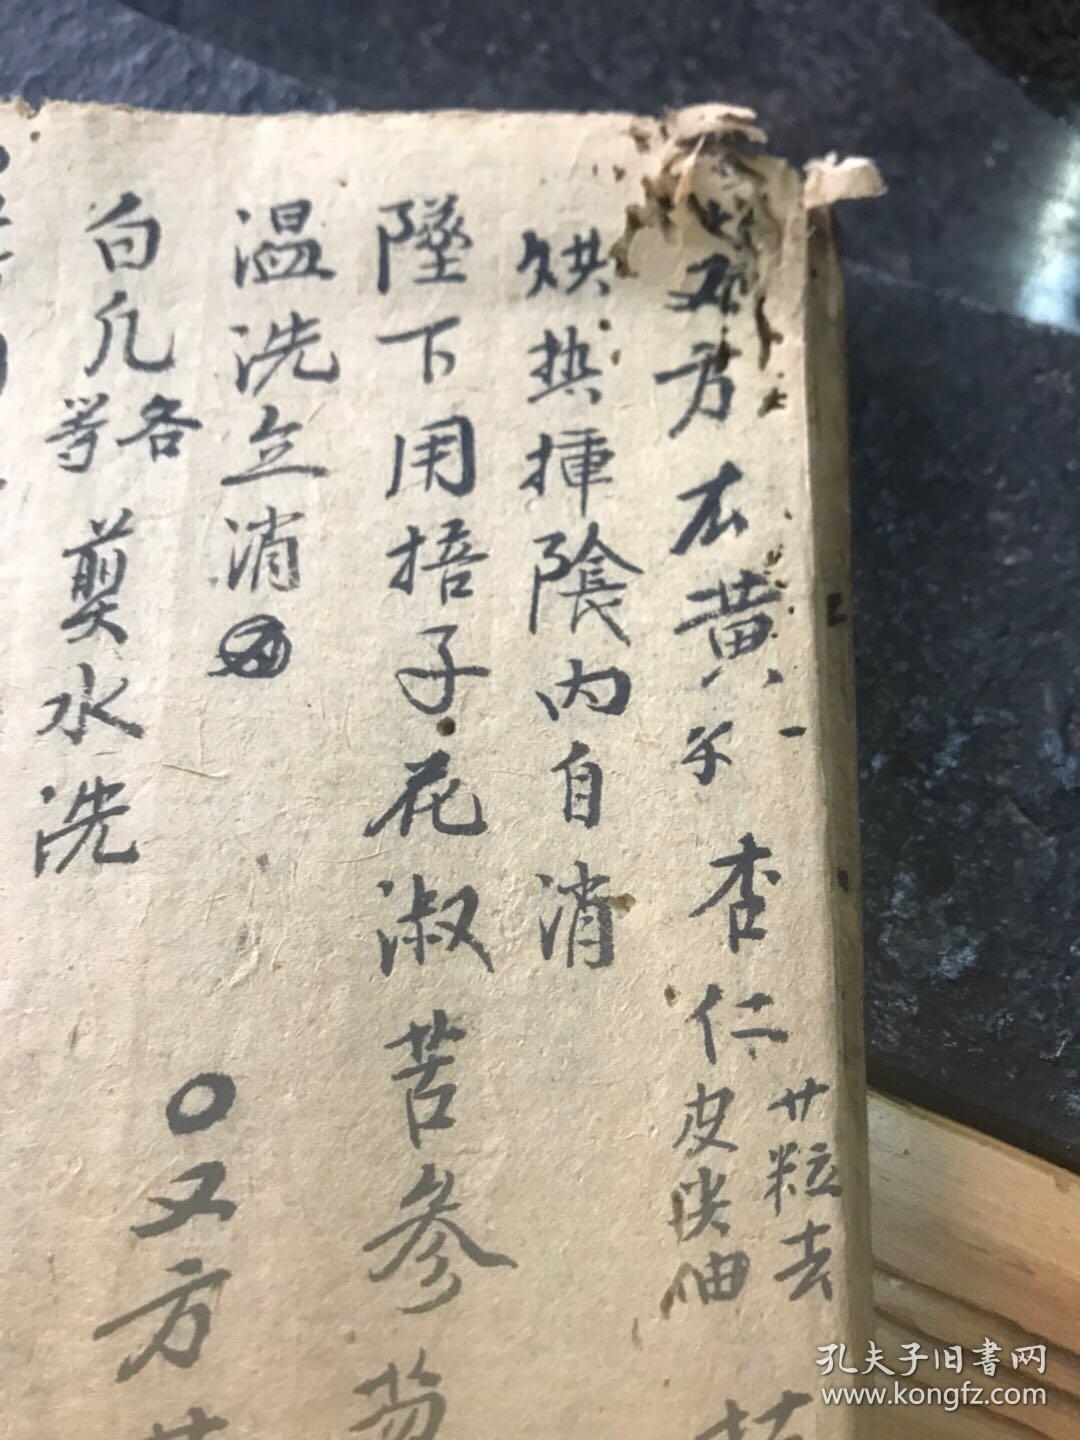 又方 厷黄 子一 杏仁 廿粒去皮尖油
烘热揷陰内自消
墜下用捂子花淑苦参
温洗立消
白凡各等煎水洗
〇又方
孔夫子旧書网
www.kongfz.com